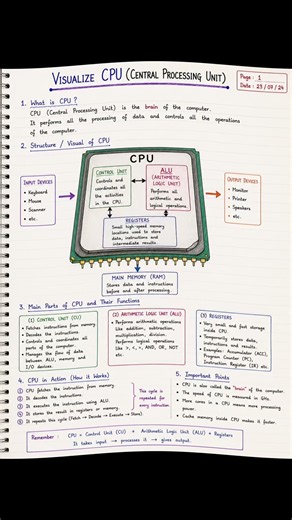 VISUALIZE CPU (CENTRAL PROCESSING UNIT)
Page : 1
Date : 23 / 07 / 24
1. What is CPU ?
CPU (Central Processing Unit) is the brain of the computer.
It performs all the processing of data and controls all the operations
of the computer.
2. Structure / Visual of CPU
CPU
CONTROL UNIT
Controls and
coordinates all
the activities
in the CPU.
ALU
(ARITHMETIC
LOGIC UNIT)
Performs all
arithmetic and
logical operations.
REGISTERS
Small high-speed memory
locations used to store
data, instructions and
intermediate results
INPUT DEVICES
• Keyboard
• Mouse
• Scanner
• etc.
OUTPUT DEVICES
• Monitor
• Printer
• Speakers
• etc.
MAIN MEMORY (RAM)
Stores data and instructions
before and after processing
3. Main Parts of CPU and Their Functions
(1) CONTROL UNIT (CU)
• Fetches instructions from memory.
• Decodes the instructions.
• Controls and coordinates all
parts of the computer.
• Manages the flow of data
between ALU, memory and
I/O devices.
(2) ARITHMETIC LOGIC UNIT (ALU)
• Performs arithmetic operations
like addition, subtraction,
multiplication, division.
• Performs logical operations
like >, <, =, AND, OR, NOT
etc.
(3) REGISTERS
• Very small and fast storage
inside CPU.
• Temporarily stores data,
instructions and results.
• Examples: Accumulator (ACC),
Program Counter (PC),
Instruction Register (IR) etc.
4. CPU in Action (How it Works)
① CPU fetches the instruction from memory.
② It decodes the instructions.
③ It executes the instruction using ALU.
④ It stores the result in registers or memory.
⑤ It repeats this cycle (Fetch → Decode → Execute → Store).
This cycle is
repeated for
every instruction
5. Important Points
• CPU is also called the "brain" of the computer.
• The speed of CPU is measured in GHz.
• More cores in a CPU means more processing
power.
• Cache memory inside CPU makes it faster.
Remember : CPU = Control Unit (CU) + Arithmetic Logic Unit (ALU) + Registers
It takes input → processes it → gives output.